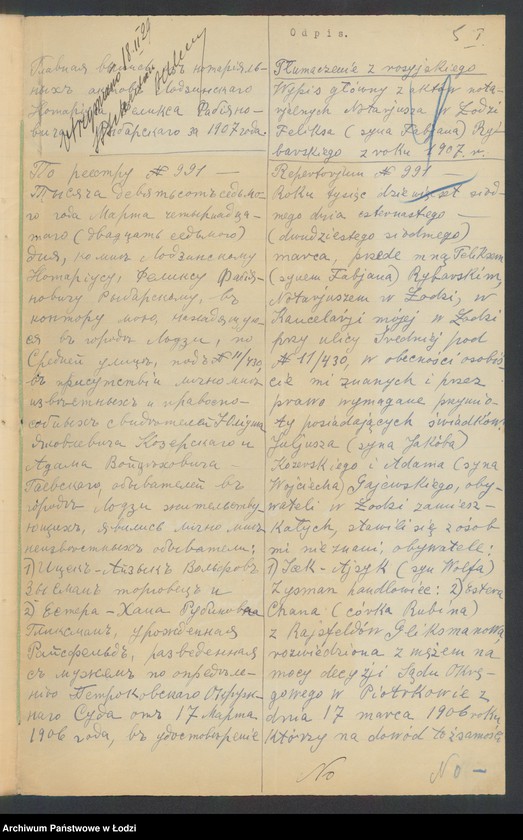 Odpis.
5 I
18.II 29
Главная выпись нотаріаль-
ныхъ актовъ Лодзинскаго
Нотаріуса Феликса Фабіяно-
вича Рыбарскаго за 1907 года.
По реестру № 991 —
Тысяча девятьсотъ седьмо-
го года Марта четырнадца-
таго (двадцать седьмого)
дня, ко мнѣ Лодзинскому
Нотаріусу, Феликсу Фабія-
новичу Рыбарскому, въ
контору мою, находящую-
ся въ городѣ Лодзи, по
Средней улицѣ, подъ № 11/430,
въ присутствіи лично мнѣ
извѣстныхъ и правоспо-
собныхъ свидѣтелей Юліуша
Яковлевича Козерскаго и
Адама Войцѣховича
Гаевскаго, обывателей въ
городѣ Лодзи жительству-
ющихъ, явились лично мнѣ
неизвѣстные обыватели:
1) Ицекъ-Айзыкъ Вольфовъ
Зысманъ торговецъ и
2) Естера-Хана Рубиновна
Гликсманъ, урожденная
Райсфельдъ, разведенная
съ мужемъ по опредѣле-
нію Петроковскаго Окруж-
наго Суда отъ 17 Марта
1906 года, въ удостовѣреніе
Tłumaczenie z rosyjskiego
Wypis główny z aktów nota-
rjalnych Notarjusza w Łodzi
Feliksa (syna Fabjana) Ry-
barskiego z roku 1907 r.
Repertorjum № 991 —
Roku tysiąc dziewięćset siód-
mego dnia czternastego —
(dwudziestego siódmego)
marca, przede mną Feliksem
(synem Fabjana) Rybarskim,
Notarjuszem w Łodzi, w
Kancelarji mojej w Łodzi
przy ulicy Średniej pod
№ 11/430, w obecności osobiś-
cie mi znanych i przez
prawo wymagane przymio-
ty posiadających świadków
Juljusza (syna Jakóba)
Kozerskiego i Adama (syna
Wojciecha) Gajewskiego, oby-
wateli w Łodzi zamiesz-
kałych, stawili się z osób
mi nieznani, obywatele:
1) Icek-Ajzyk (syn Wolfa)
Zysman handlowiec: 2) Estera
Chana (córka Rubina)
z Rajsfeldów Gliksmanowa
rozwiedziona z mężem na
mocy decyzji Sądu Okrę-
gowego w Piotrkowie z
dnia 17 marca 1906 roku,
którzy na dowód tożsamości
No
No —
Archiwum Państwowe w Łodzi